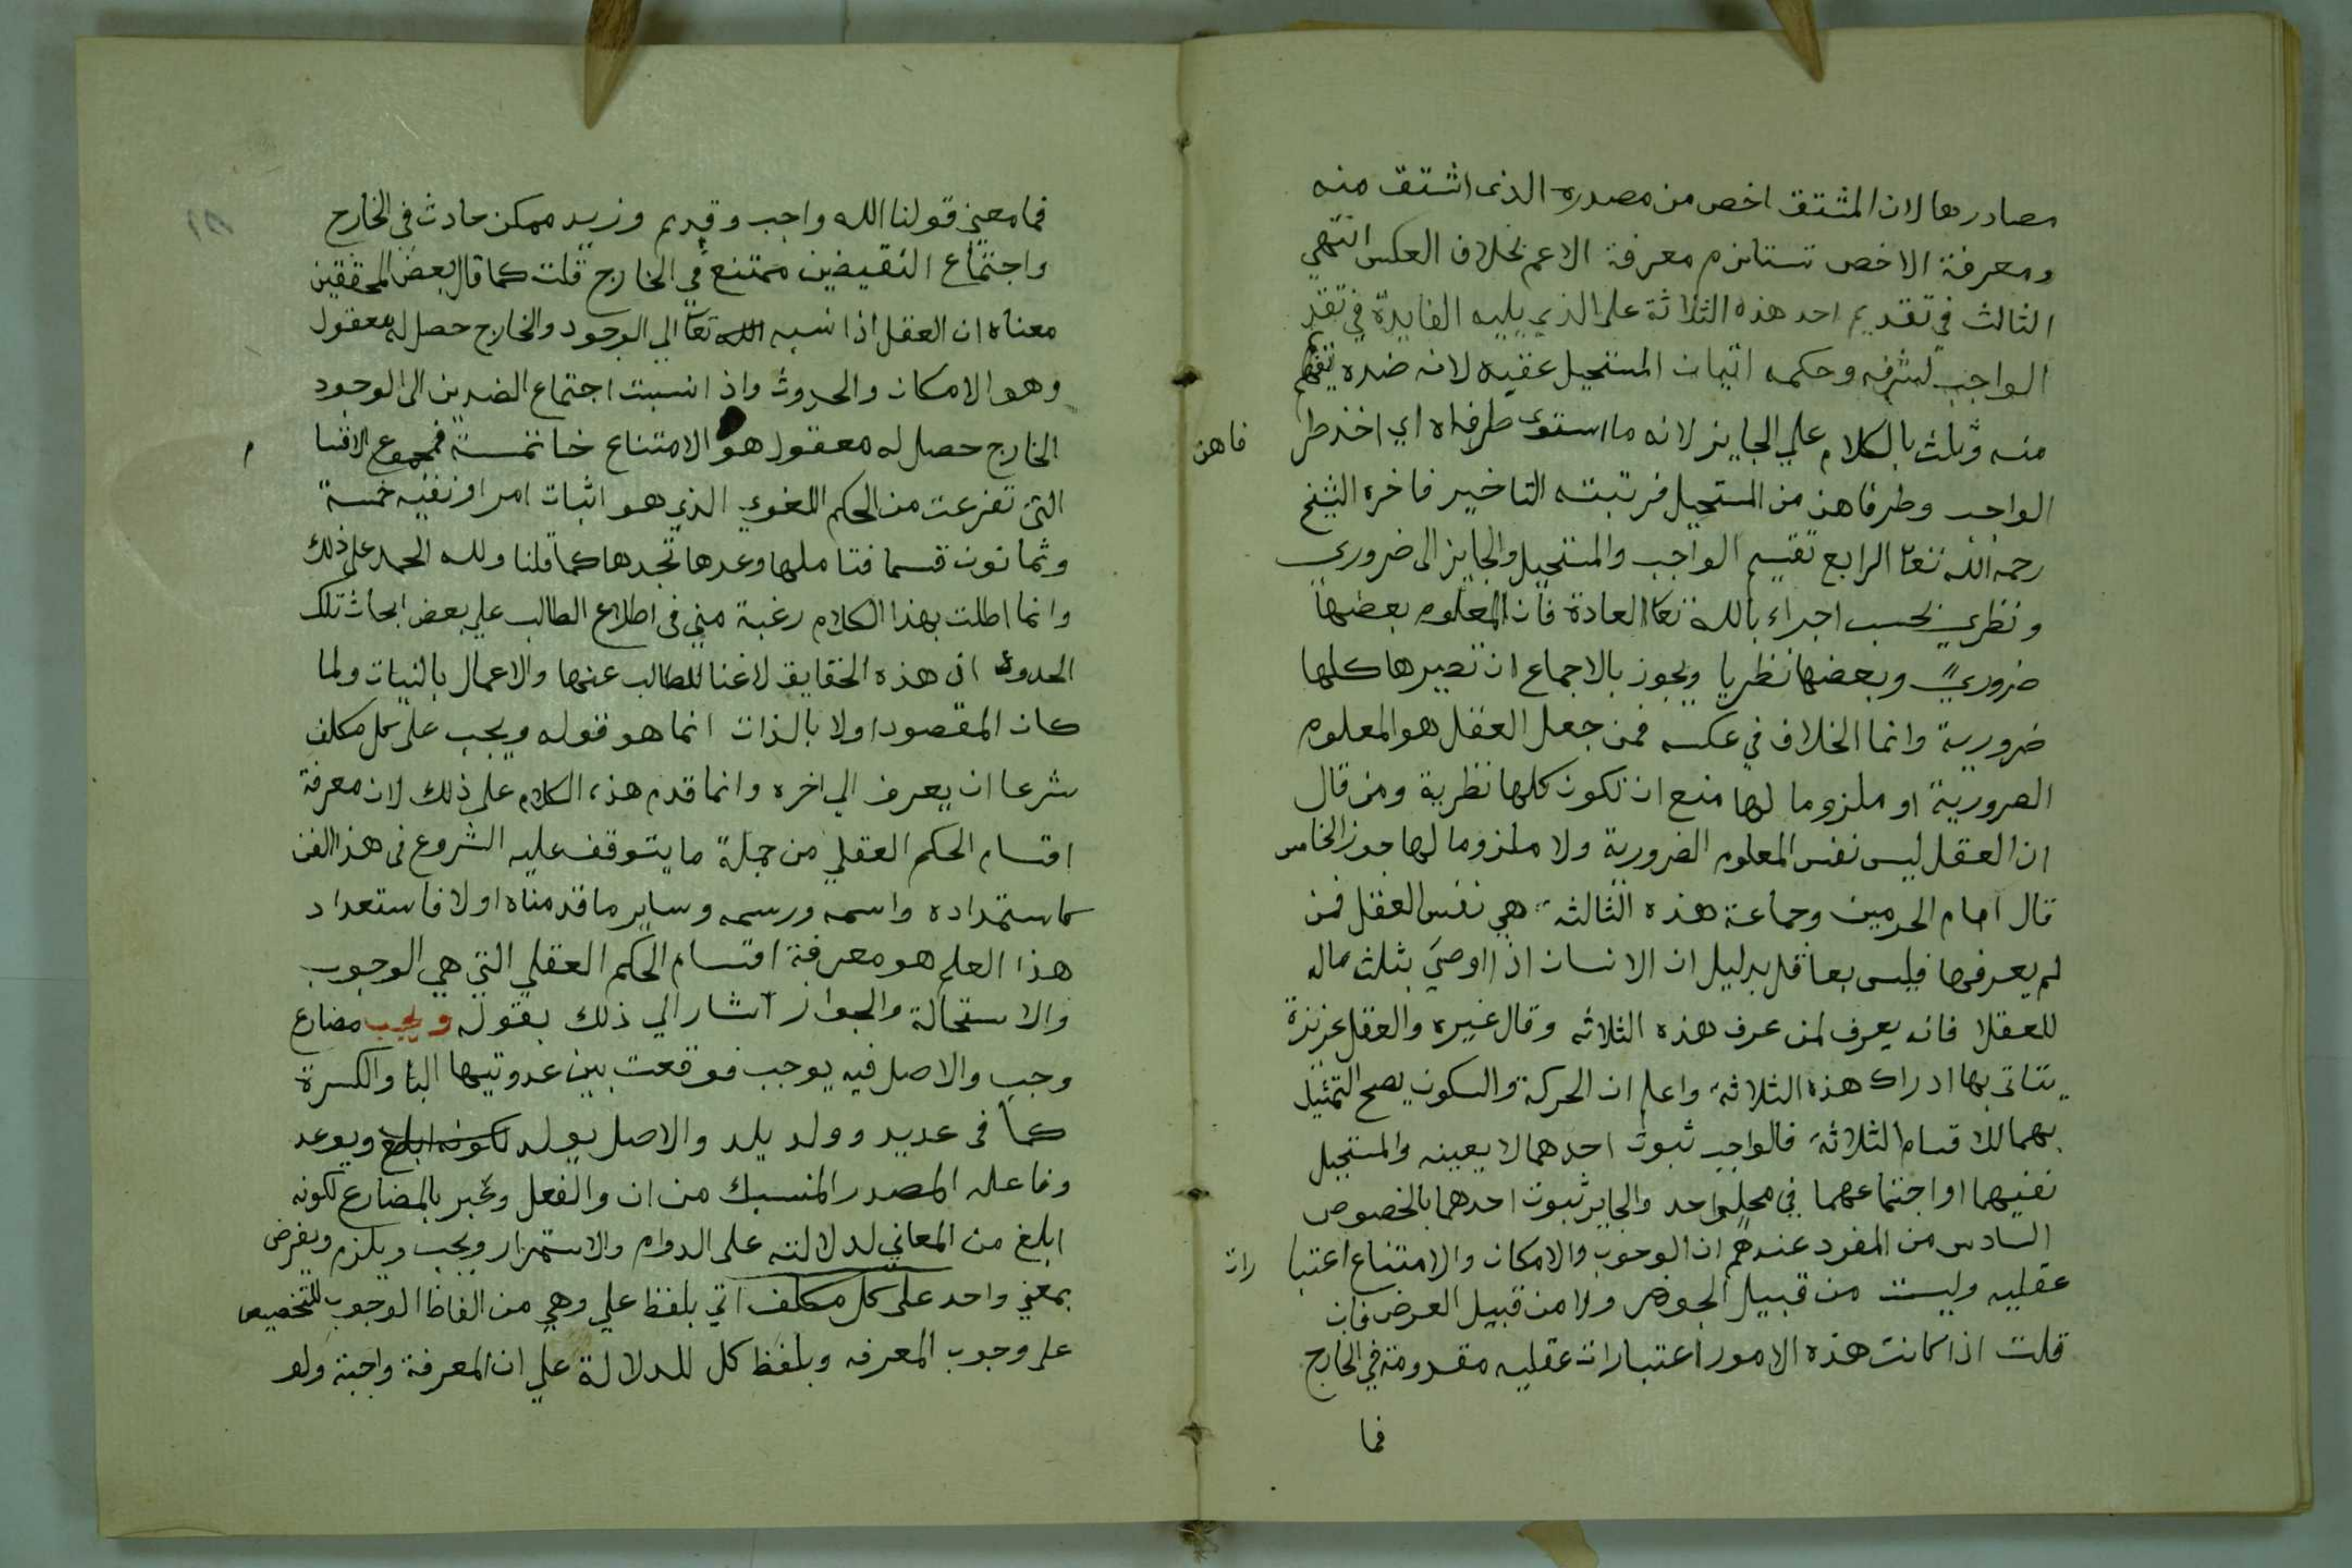 مصادرها لان المشتق اخص من مصدره الذى اشتق منه
ومعرفة الاخص تستلزم معرفة الاعم بخلاف العكس انتهي
الثالث في تقديم احد هذه الثلاثة على الذي يليه الفايدة في تقد
الواجب لشرفه وحكمه اتيان المستحيل عقبه لانه ضده يفهم
منه وثلث بالكلام علي الجايز لانه ما استوى طرفاه اي اخذ طر
فا من الواجب وطرفا من المستحيل فرتبته التاخير فاخره الشيخ
رحمه الله تعا الرابع تقسيم الواجب والمستحيل والجايز الى ضروري
ونظري بحسب اجراء بالله تعا العادة فان المعلوم بعضها
ضروري وبعضها نظريا ويجوز بالاجماع ان تصيرها كلها
ضرورية وانما الخلاف في عكسه فمن جعل العقل هو المعلوم
الضرورية او ملزوما لها منع ان تكون كلها نظرية ومن قال
ان العقل ليس نفس المعلوم الضرورية ولا ملزوما لها جوز الخامس
قال امام الحرمين وجماعة هذه الثالثة هي نفس العقل فمن
لم يعرفها فليس بعاقل بدليل ان الانسان اذا اوصي بثلث ماله
للعقلا فانه يعرف لمن عرف هذه الثلاثه وقال غيره والعقل غريزة
يتاتى بها ادراك هذه الثلاثة واعلم ان الحركة والسكون يصح التمثيل
بهما للاقسام الثلاثة فالواجب ثبوت احدهما لا بعينه والمستحيل
نفيهما او اجتماعهما في محل واحد والجايز ثبوت احدهما بالخصوص
السادس من المقرر عندهم ان الوجوب والامكان والامتناع اعتبا رات
عقليه وليست من قبيل الجوهر ولا من قبيل العرض فان
قلت اذا كانت هذه الامور اعتبارات عقليه معدومة في الخارج
فما
فما معنى قولنا الله واجب وقديم وزيد ممكن حادث في الخارج
واجتماع النقيضين ممتنع في الخارج قلت كما قال بعض المحققين
معناه ان العقل اذا نسبه الله تعا الي الوجود والخارج حصل له معقول
وهو الامكان والحدوث واذا نسبت اجتماع الضدين الى الوجود
الخارج حصل له معقول هو الامتناع خاتمسة فمجموع الاقسا م
التي تفرعت من الحكم اللغوي الذي هو اثبات امر او نفيه خمسة
وثمانون قسما فتاملها وعدها تجدها كما قلنا ولله الحمد على ذلك
وانما اطلت بهذا الكلام رغبة مني في اطلاع الطالب علي بعض ابحاث تلك
الحدود اذ هذه الحقايق لا غنا للطالب عنها والاعمال بالنيات ولما
كان المقصود اولا بالذات انما هو قوله ويجب على كل مكلف
شرعا ان يعرف الي اخره وانما قدم هذا الكلام على ذلك لان معرفة
اقسام الحكم العقلي من جملة ما يتوقف عليه الشروع في هذا الفن
كاستمداده واسمه ورسمه وساير ما قدمناه اولا فاستعداد
هذا العلم هو معرفة اقسام الحكم العقلي التي هي الوجوب
والاستحالة والجواز اشار الي ذلك بقوله ويجب مضارع
وجب والاصل فيه يوجب فوقعت بين عدوتيها اليا والكسرة
كما في عديد وولد يلد والاصل يولد لكونه ابلغ ويوعد
وفاعله المصدر المنسبك من ان والفعل وعبر بالمضارع لكونه
ابلغ من المعاني لدلالته على الدوام والاستمرار ويجب ويلزم ويفرض
بمعني واحد على كل مكلف اتي بلفظ علي وهي من الفاظ الوجوب للتخصيص
على وجوب المعرفه وبلفظ كل للدلالة علي ان المعرفة واجبة ولو